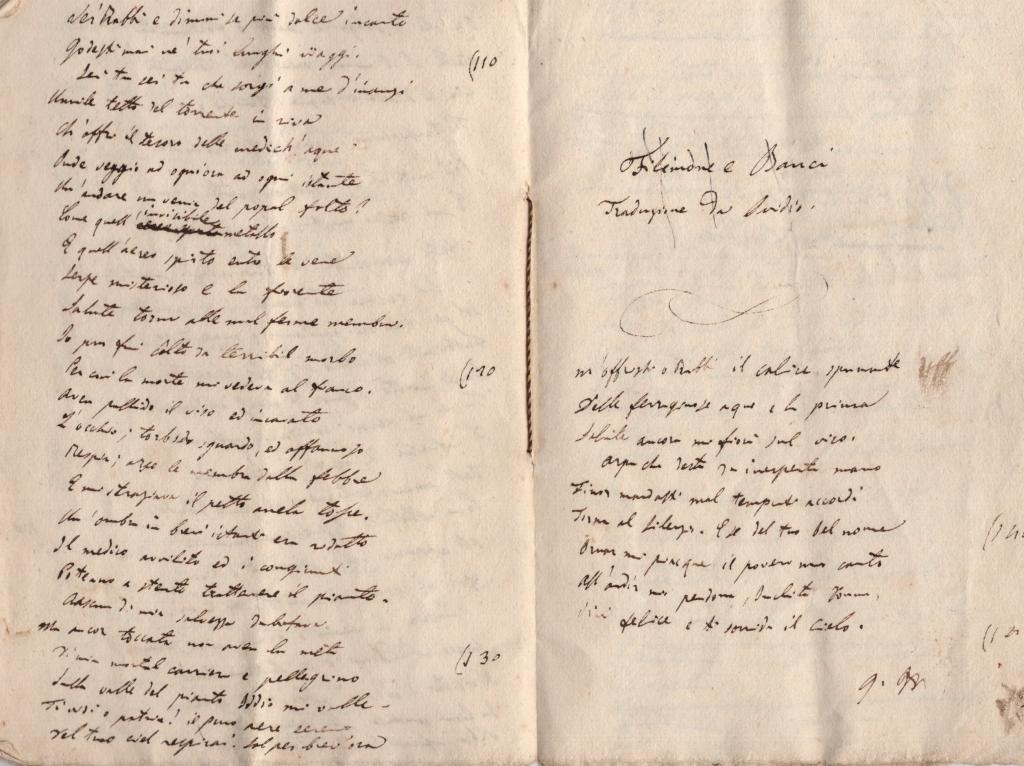 di Rabbi e dimmi se più dolce incanto
Godesti mai ne' tuoi lunghi viaggi.
(110
Sei tu sei tu che sorgi a me d'inanzi
Umile tetto del torrente in riva
Ch'offri il tesoro delle medich'aque
Onde veggio ad ogniora ad ogni istante
Un'andare un venir del popol folto?
Come quell'invisibile metallo
E quell'aereo spirto entro le vene
Serpe misterioso e la fiorente
Salute torna alle mal ferme membra.
Io pur fui còlto da terribil morbo
(120
Per cui la morte mi vedeva al fianco.
Avea pallido il viso ed incavato
L'occhio; torbido sguardo, ed affannoso
Respir; arse le membra dalla febbre
E mi straziava il petto anela tosse.
Un'ombra in brevi istanti era ridotto
Il medico avvilito ed i congiunti
Poteano a stento trattenere il pianto.
di mia salvezza dubitava.
Ma ancor toccata non avea la meta
(130
Di mia mortal carriera e pellegrino
Sulla valle del pianto Iddio mi volle.
Ti vidi o patria! il puro aere sereno
Del tuo ciel respirai. Sol per brev'ora
Filemone e Bauci
Traduzione da Ovidio.
M'offristi o Rabbi il calice spumante
Delle ferruginose aque e la prima
ancora mi fiorì sul viso.
Arpa che desta da inesperta mano
Finor mandasti mal temprati accordi
Torna al silenzio. E se del tuo bel nome
Ornar mi piacque il povero mio canto
All'ardir mio perdona, Inclita Donna,
Vivi felice e ti sorrida il Cielo.